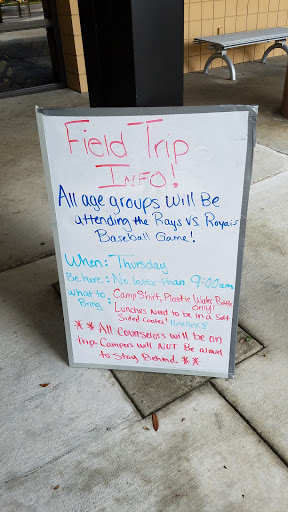 Field Trip
INFO!
All age groups will Be
attending the Rays vs Royals
Baseball Game!
When: Thursday
Be here: No later than 9:00am
What to Bring: Camp Shirt, Plastic Water Bottle only!
Lunches need to be in a Soft
Sided Cooler!
** All Counselors will be on
trip. Campers will NOT Be aloud
to Stay Behind. **